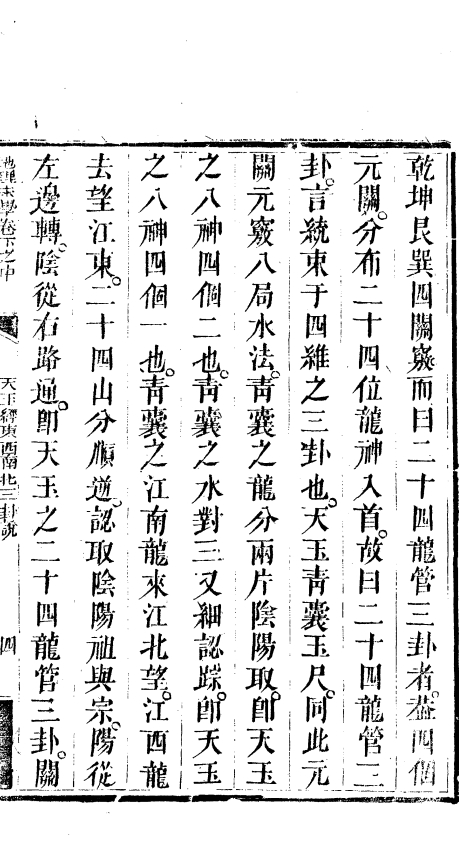 乾坤艮巽四關竅而曰二十四龍管三卦者。葢四個
元關。分布二十四位龍神入首。故曰二十四龍管三
卦。言統束于四維之三卦也。天玉青囊玉尺。同此元
關元竅八局水法。青囊之龍分兩片陰陽取。卽天玉
之八神四個二也。青囊之水對三叉細認踪。卽天玉
之八神四個一也。青囊之江南龍來江北望。江西龍
去望江東。二十四山分順逆。認取陰陽祖與宗。陽從
左邊轉。陰從右路通。卽天玉之二十四龍管三卦。關
卷下之中
天玉經東西南北三卦說
四